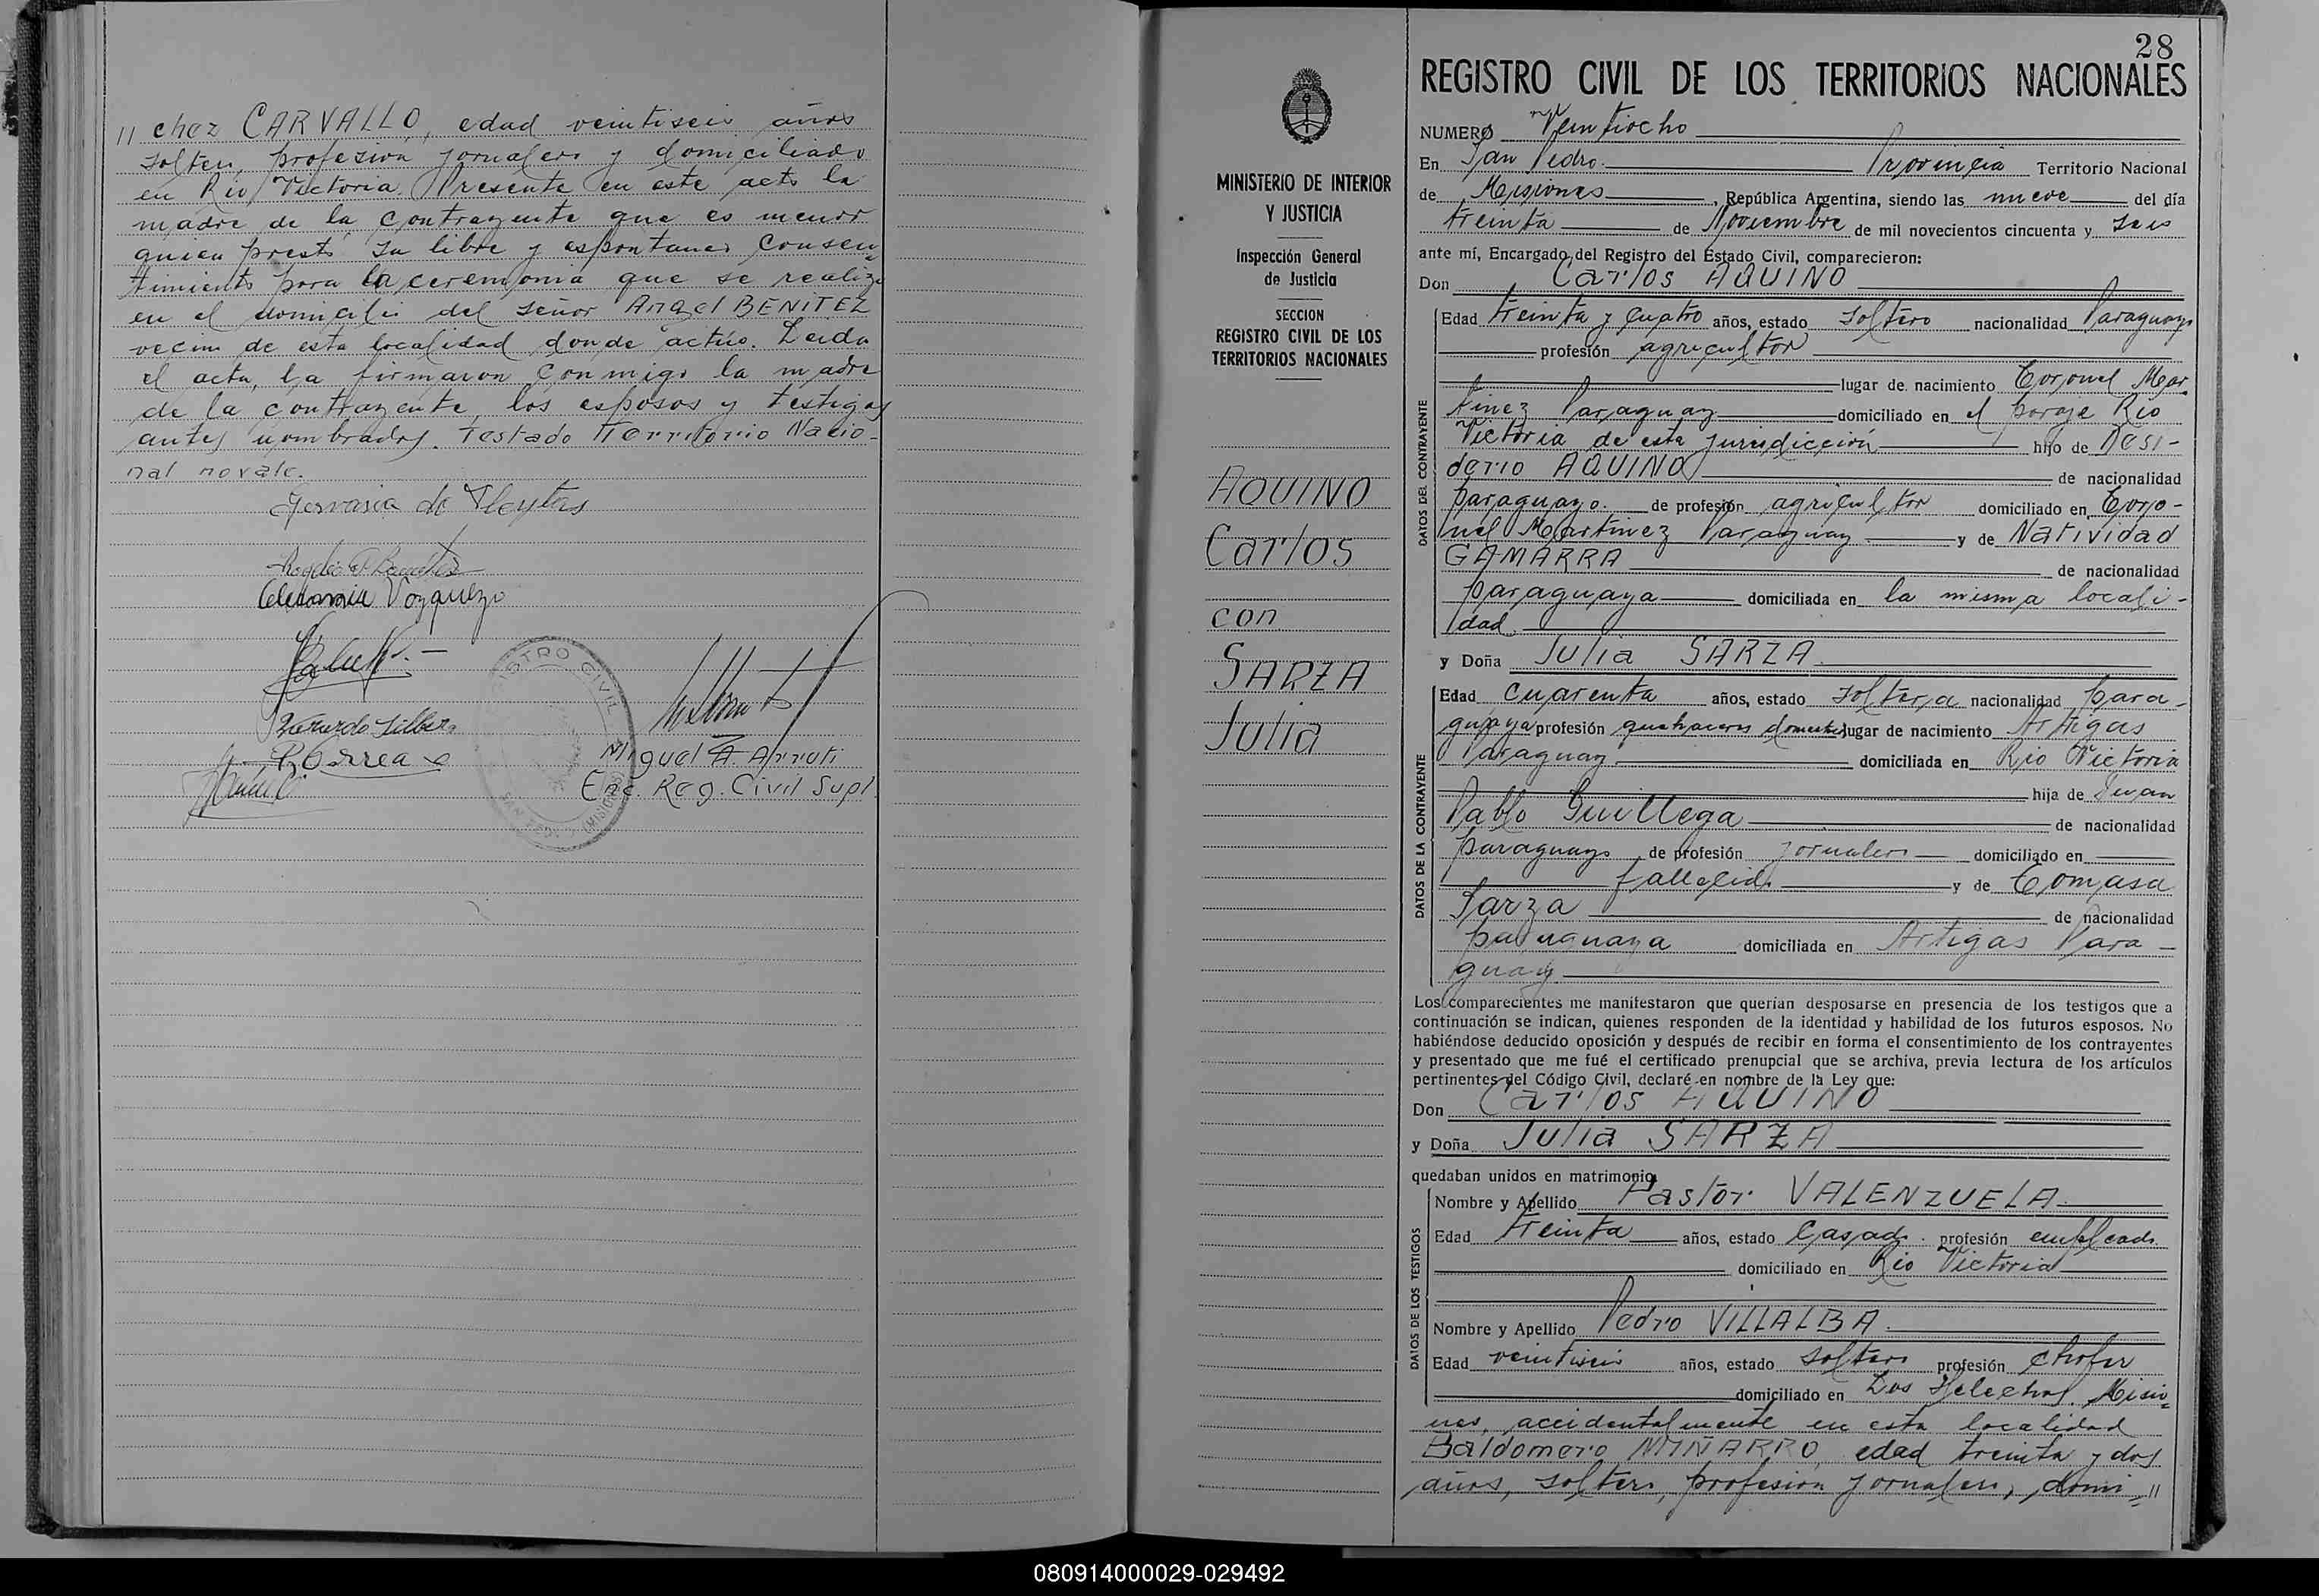 // chez CARVALLO, edad veintiseis años
soltero, profesion jornalero y domiciliado
en Río Victoria. Presente en este acto la
madre de la contrayente que es menor
quien prestó su libre y espontaneo consen=
timiento para la ceremonia que se realiza
en el domicilio del señor Angel BENITEZ
vecino de esta localidad donde actúo. Leida
el acta, la firmaron conmigo la madre
de la contrayente, los esposos y testigos
antes nombrados. Testado Territorio Nacio-
nal no vale.
Gervasia de Fleytas
Miguel A. Arruti
Enc. Reg. Civil Supl.
REGISTRO CIVIL
28
REGISTRO CIVIL DE LOS TERRITORIOS NACIONALES
MINISTERIO DE INTERIOR
Y JUSTICIA
Inspección General
de Justicia
SECCION
REGISTRO CIVIL DE LOS
TERRITORIOS NACIONALES
AQUINO
Carlos
con
SARZA
Julia
NUMERO Veintiocho
En San Pedro. Provincia Territorio Nacional
de Misiones, República Argentina, siendo las nueve del día
treinta de Noviembre de mil novecientos cincuenta y seis
ante mí, Encargado del Registro del Estado Civil, comparecieron:
Don Carlos AQUINO
DATOS DEL CONTRAYENTE
Edad treinta y cuatro años, estado soltero nacionalidad Paraguayo
profesión agricultor
lugar de nacimiento Coronel Mar
tinez Paraguay domiciliado en el paraje Río
Victoria de esta jurisdicción hijo de Desi-
derio AQUINO
de nacionalidad
paraguayo. de profesión agricultor domiciliado en Coro-
nel Martinez Paraguay y de Natividad
GAMARRA
de nacionalidad
paraguaya domiciliada en la misma locali-
dad.
y Doña Julia SARZA
DATOS DE LA CONTRAYENTE
Edad cuarenta años, estado soltera nacionalidad para-
guaya profesión quehaceres domest. lugar de nacimiento Artigas
Paraguay domiciliada en Río Victoria
hija de Juan
Pablo Guillega
de nacionalidad
paraguayo de profesión jornalero domiciliado en
fallecido y de Tomasa
Sarza
de nacionalidad
paraguaya domiciliada en Artigas Para-
guay
Los comparecientes me manifestaron que querían desposarse en presencia de los testigos que a
continuación se indican, quienes responden de la identidad y habilidad de los futuros esposos. No
habiéndose deducido oposición y después de recibir en forma el consentimiento de los contrayentes
y presentado que me fué el certificado prenupcial que se archiva, previa lectura de los artículos
pertinentes del Código Civil, declaré en nombre de la Ley que:
Don Carlos AQUINO
y Doña Julia SARZA
quedaban unidos en matrimonio
DATOS DE LOS TESTIGOS
Nombre y Apellido Pastor VALENZUELA
Edad treinta años, estado casado. profesión empleado.
domiciliado en Río Victoria
Nombre y Apellido Pedro VILLALBA.
Edad veintiseis años, estado soltero profesión chofer
domiciliado en Los Helechos. Misio=
nes, accidentalmente en esta localidad
Baldomero MIÑARRO, edad treinta y dos
años, soltero, profesion jornalero, domi=//
080914000029-029492